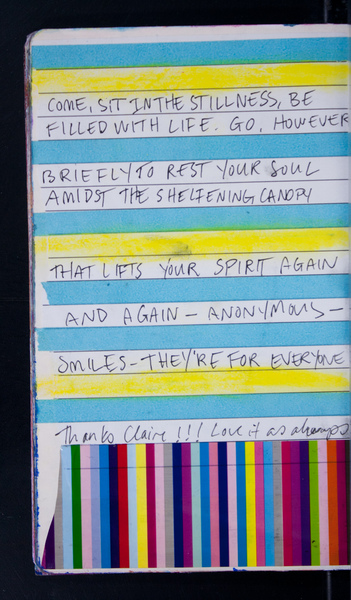 COME, SIT IN THE STILLNESS, BE
FILLED WITH LIFE. GO, HOWEVER
BRIEFLY TO REST YOUR SOUL
AMIDST THE SHELTENING CANOPY
THAT LIFTS YOUR SPIRIT AGAIN
AND AGAIN - ANONYMOUS -
SMILES - THEY'RE FOR EVERYONE
Thanks Claire!!! Love it as always